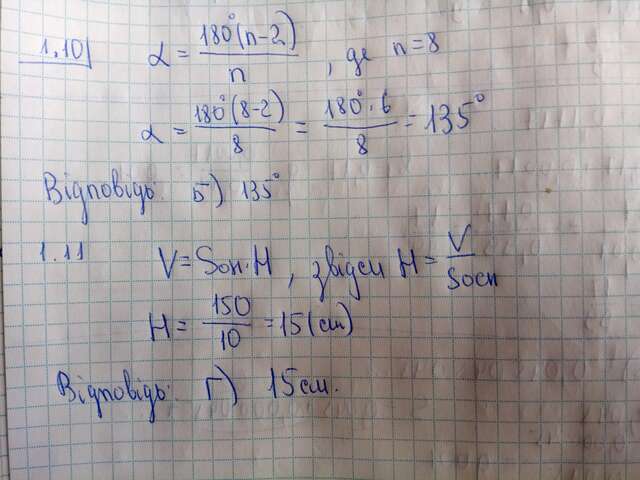 1.10 α = 180°(n-2)/n , де n=8
α = 180°(8-2)/8 = 180°·6/8 = 135°
Відповідь: Б) 135°
1.11 V = Sосн·H , звідси H = V/Sосн
H = 150/10 = 15(см)
Відповідь: Г) 15см.